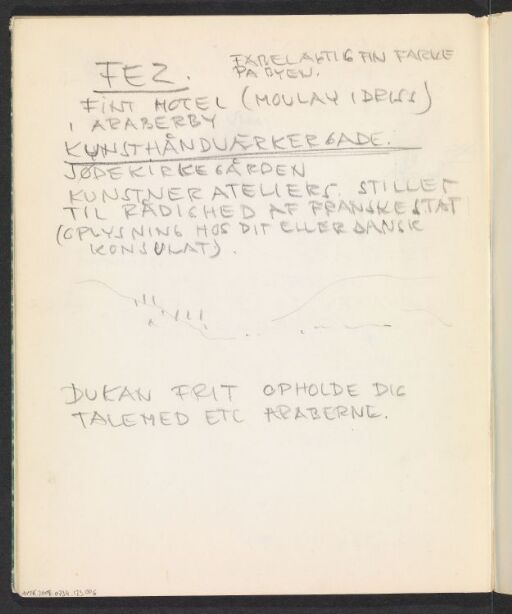 FEZ.
FABELAGTIG FIN FARVE
PÅ BYEN.
FINT HOTEL (MOULAY IDRISS)
I ARABERBY
KUNSTHÅNDVÆRKERGADE.
JØDEKIRKEGÅRDEN
KUNSTNERATELIERS. STILLET
TIL RÅDIGHED AF FRANSKE STAT
(OPLYSNING HOS DIT ELLER DANSK
KONSULAT).
DU KAN FRIT OPHOLDE DIG
TALE MED ETC ARABERNE.